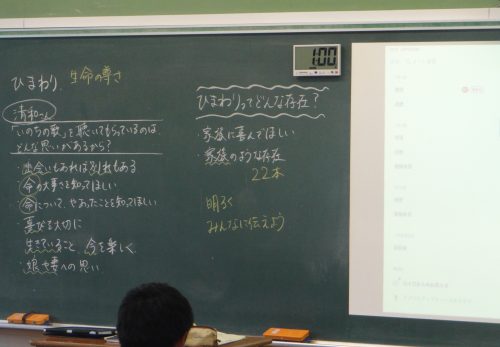 ひまわり 生命の尊さ
清和さん
「いのちの歌」を聴いてもらっているのは
どんな思いがあるから?
・出会いもあれば別れもある
・命の大事さを知ってほしい
・命について、やったことを知ってほしい
・喜びを大切に
生きていること、今を楽しく
・娘や妻への思い
1:00
ひまわりってどんな存在?
・家族に喜んでほしい
・家族のような存在
22本
明るく
みんなに伝えよう